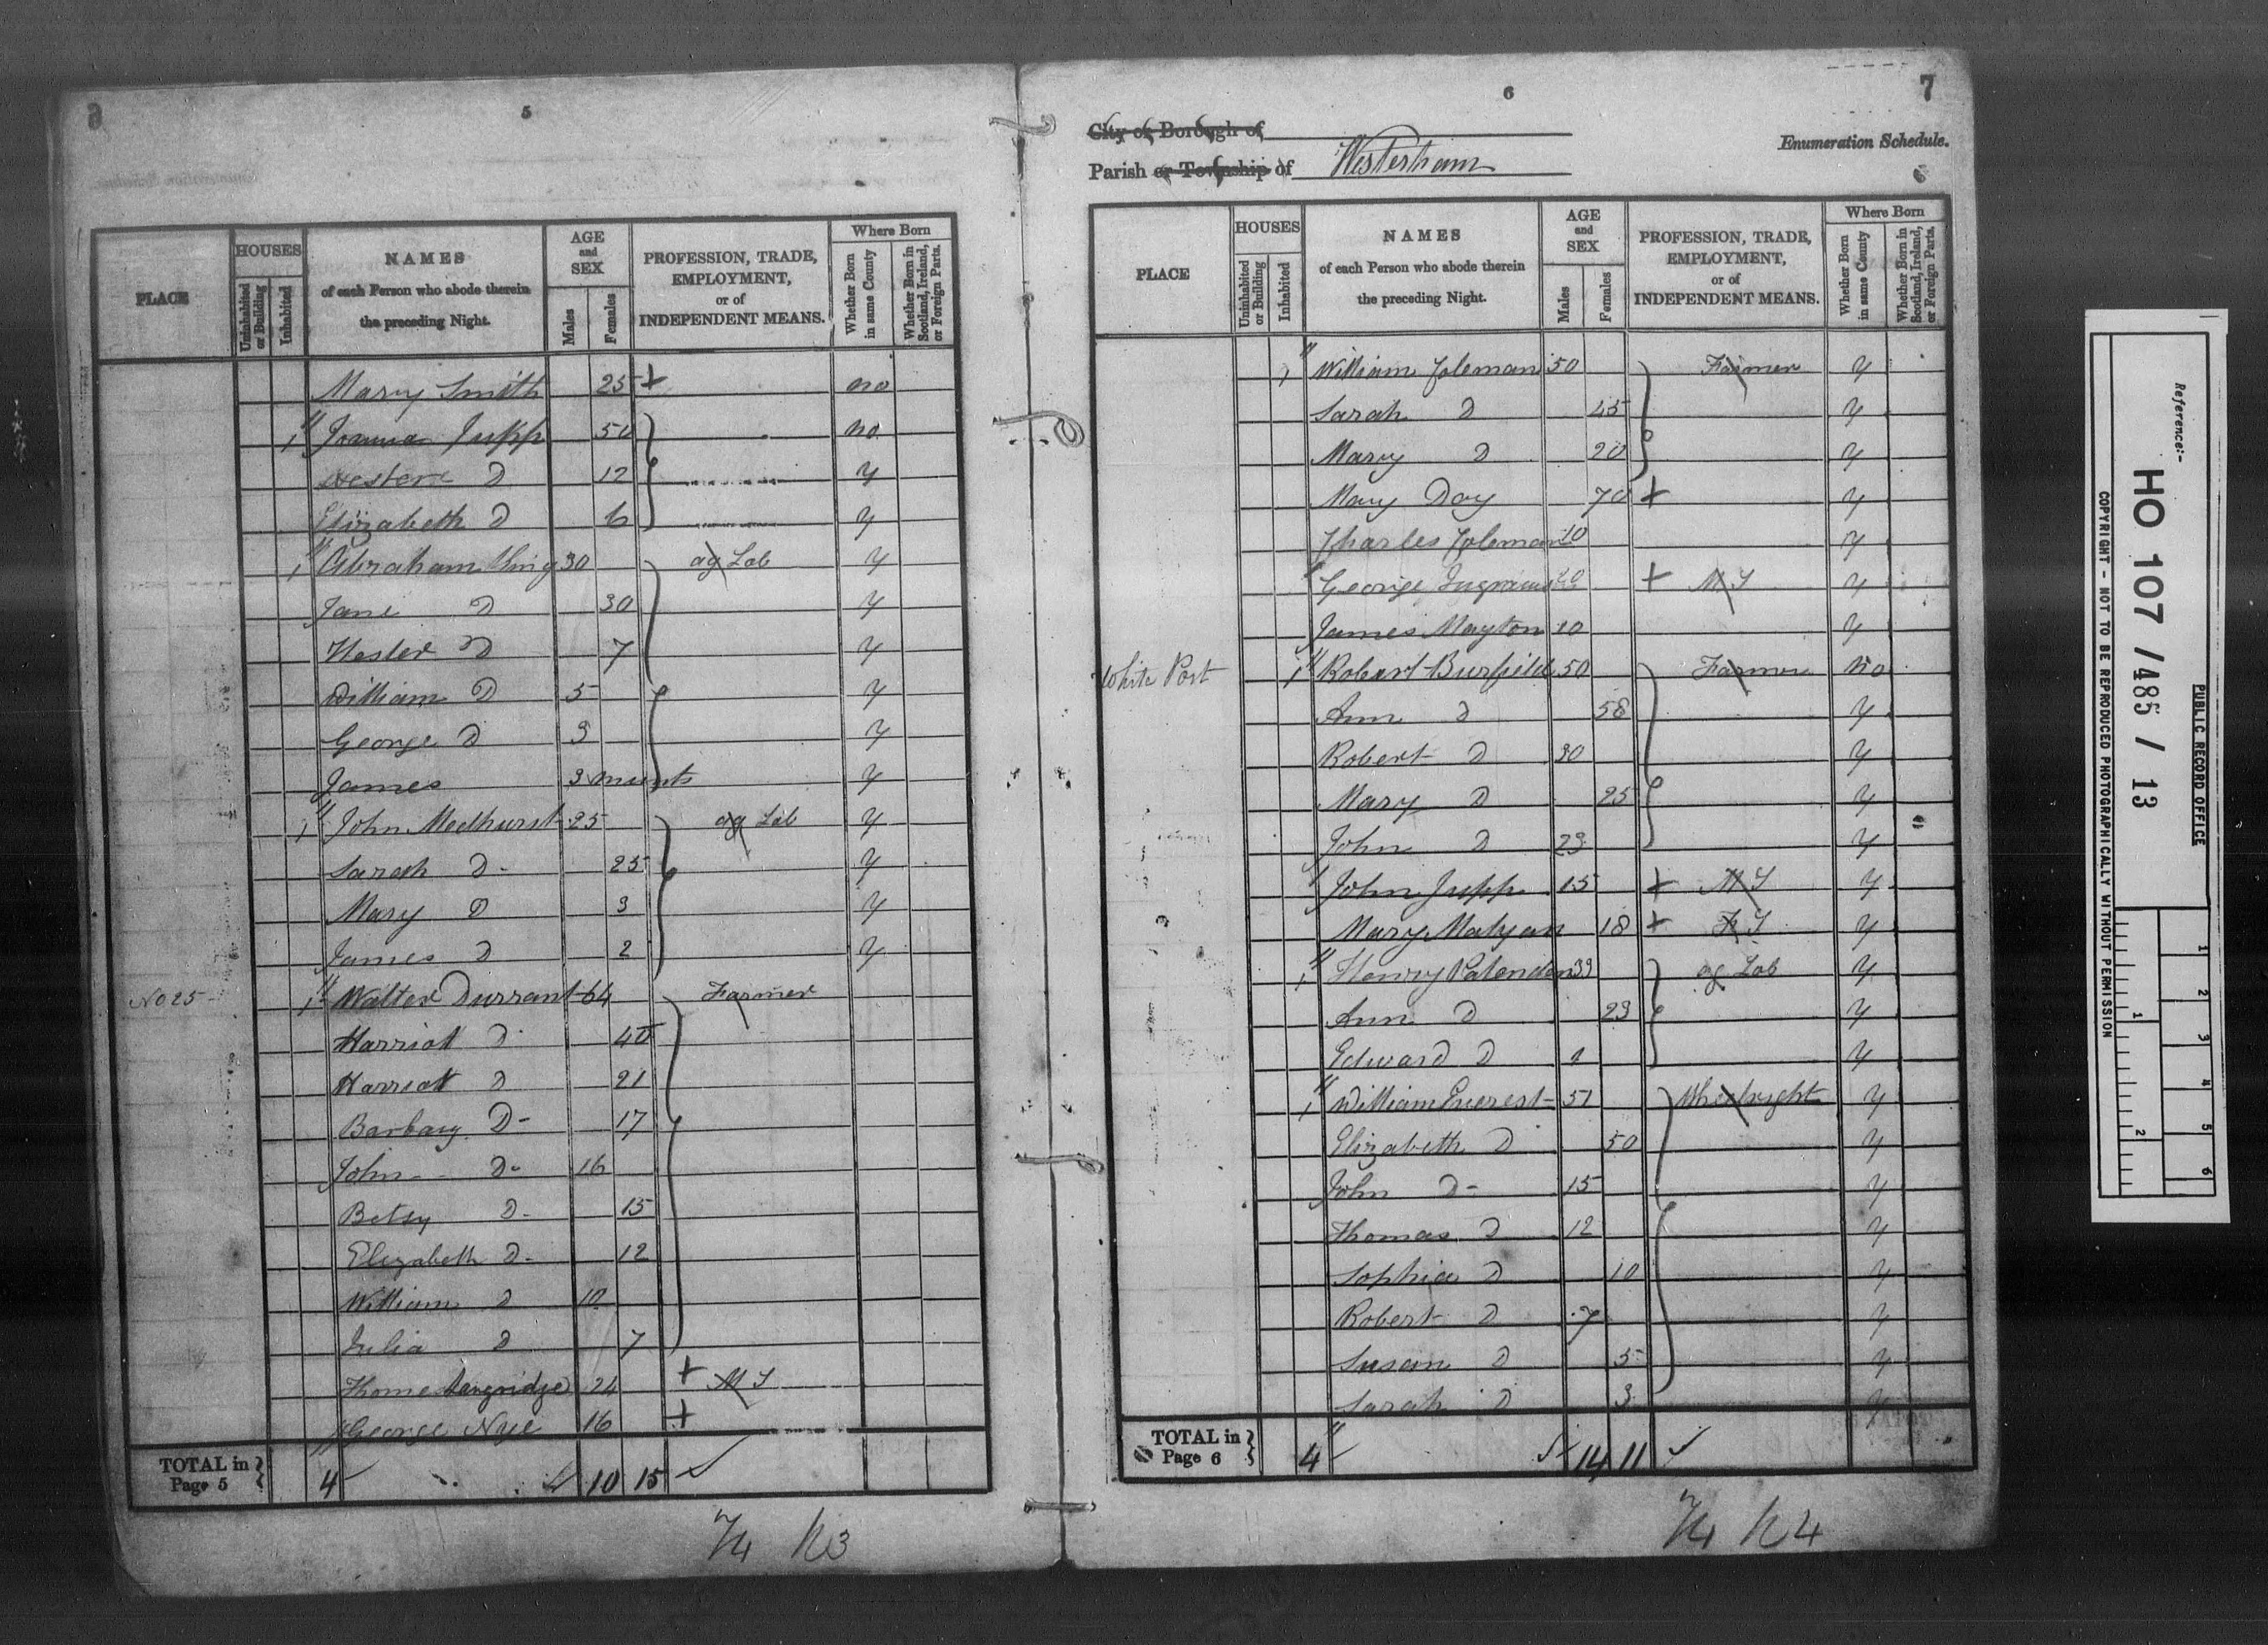 5
PLACE
HOUSES
Uninhabited or Building
Inhabited
NAMES
of each Person who abode therein
the preceding Night.
AGE and SEX
Males
Females
PROFESSION, TRADE, EMPLOYMENT, or of INDEPENDENT MEANS.
Where Born
Whether Born in same County
Whether Born in Scotland, Ireland, or Foreign Parts.
Mary Smith 25 + no
1 Joanna Jupp 50 no
D 12 y
Elizabeth D 6 y
1 Abraham 30 ag Lab y
Jane D 30 y
Hester D 7 y
William D 5 y
George D 3 y
James 3 munts y
1 John Medhurst 25 ag Lab y
Sarah D - 25 y
Mary D 3 y
James D 2 y
No 25 - 1 Walter Durrant 64 Farmer
Harriot D 40
Harriot D 21
Barbary D- 17
John D- 16
Betsy D- 15
Elizabeth D- 12
William D 10
Julia D 7
24 + M S
George Nye 16 +
TOTAL in Page 5 4 10 15
7
6
City or Borough of
Parish or Township of Westerham
Enumeration Schedule.
PLACE
HOUSES
Uninhabited or Building
Inhabited
NAMES
of each Person who abode therein
the preceding Night.
AGE and SEX
Males
Females
PROFESSION, TRADE, EMPLOYMENT, or of INDEPENDENT MEANS.
Where Born
Whether Born in same County
Whether Born in Scotland, Ireland, or Foreign Parts.
1 William Coleman 50 Farmer y
Sarah D 45 y
Mary D 20 y
Mary Day 70 + y
Charles Coleman 10 y
George Ingram 20 + M S y
James Mayton 10 y
White Post 1 Robert Burfield 50 Farmer no
Ann D 58 y
Robert D 30 y
Mary D 25 y
John D 23 y
John Jupp 15 + M S y
Mary Malyan 18 + F S y
1 Henry Patenden 33 ag Lab y
Ann D 23 y
Edward D 1 y
1 William Everest - 51 Wheelright y
Elizabeth D 50 y
John D- 15 y
Thomas D 12 y
Sophia D 10 y
Robert D 7 y
Susan D 5 y
Sarah D 3 y
TOTAL in Page 6 4 14 11
Reference:-
HO 107 / 485 / 13
PUBLIC RECORD OFFICE
COPYRIGHT - NOT TO BE REPRODUCED PHOTOGRAPHICALLY WITHOUT PERMISSION
1 2 3 4 5 6
1 2